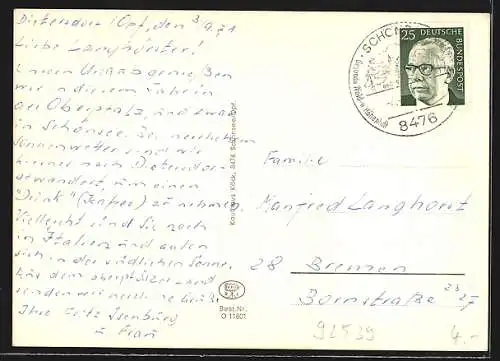 Dietersdorf/Opf, den 3/9.71
Liebe Langhorster!
Unseren Urlaub genießen
wir in diesem Jahr in
der Oberpfalz, und zwar
in Schönsee. Bei herrlichem
Sonnenwetter sind wir
hierher nach Dietersdorf
gewandert, um einen
"Drink" zu nehmen.
Vielleicht sind Sie noch
in Italien und aalen
sich in der südlichen Sonne.
wir dem Oberpfälzer und
senden wir herzliche Grüße
Ihre Fritz Isenburg
u Frau
Kaufhaus Köck, 8476 Schönsee/Opf.
Best.Nr.
O 11601
SCHÖNSEE
8476
25
DEUTSCHE
BUNDESPOST
Familie
Manfred Langhorst
28 Bremen
Bornstraße 23 27
92539
4.-